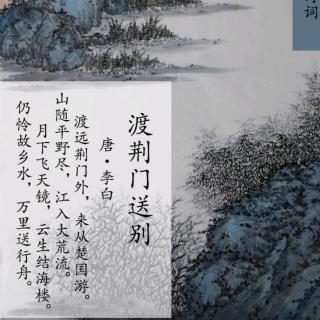 诗词
渡荆门送别
唐·李白
渡远荆门外，来从楚国游。
山随平野尽，江入大荒流。
月下飞天镜，云生结海楼。
仍怜故乡水，万里送行舟。